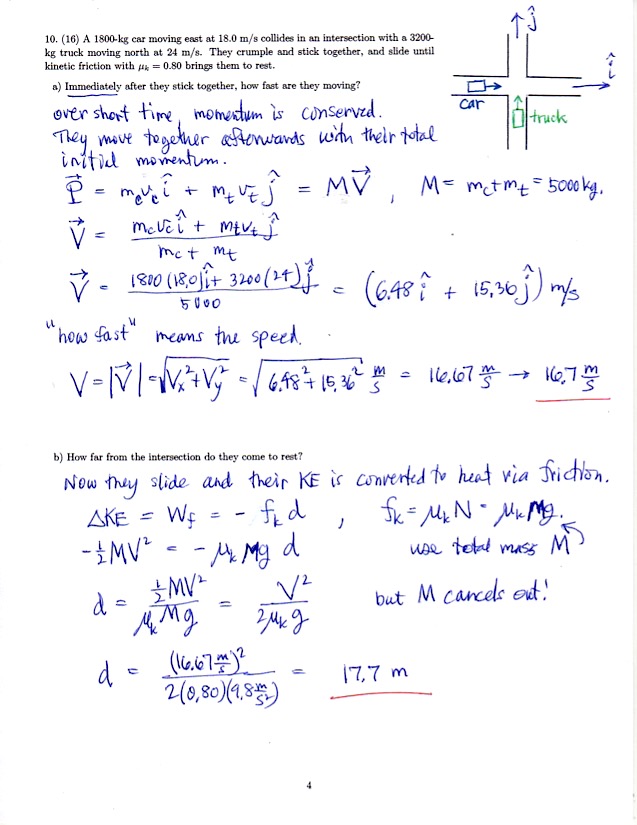 10. (16) A 1800-kg car moving east at 18.0 m/s collides in an intersection with a 3200-
kg truck moving north at 24 m/s. They crumple and stick together, and slide until
kinetic friction with μₖ = 0.80 brings them to rest.
a) Immediately after they stick together, how fast are they moving?
ĵ
î
car
truck
over short time, momentum is conserved.
They move together afterwards with their total
initial momentum.
P⃗ = m_c v_c î + m_t v_t ĵ = MV⃗ , M = m_c + m_t = 5000 kg.
V⃗ = (m_c v_c î + m_t v_t ĵ) / (m_c + m_t)
V⃗ = (1800 (18.0) î + 3200 (24) ĵ) / 5000 = (6.48 î + 15.36 ĵ) m/s
"how fast" means the speed.
V = |V⃗| = √(V_x² + V_y²) = √(6.48² + 15.36²) m/s = 16.67 m/s → 16.7 m/s
b) How far from the intersection do they come to rest?
Now they slide and their KE is converted to heat via friction.
ΔKE = W_f = - f_k d , f_k = μ_k N = μ_k Mg.
-½MV² = - μ_k Mg d use total mass M
d = ½MV² / μ_k Mg = V² / 2μ_k g but M cancels out!
d = (16.67 m/s)² / 2(0.80)(9.8 m/s²) = 17.7 m
4